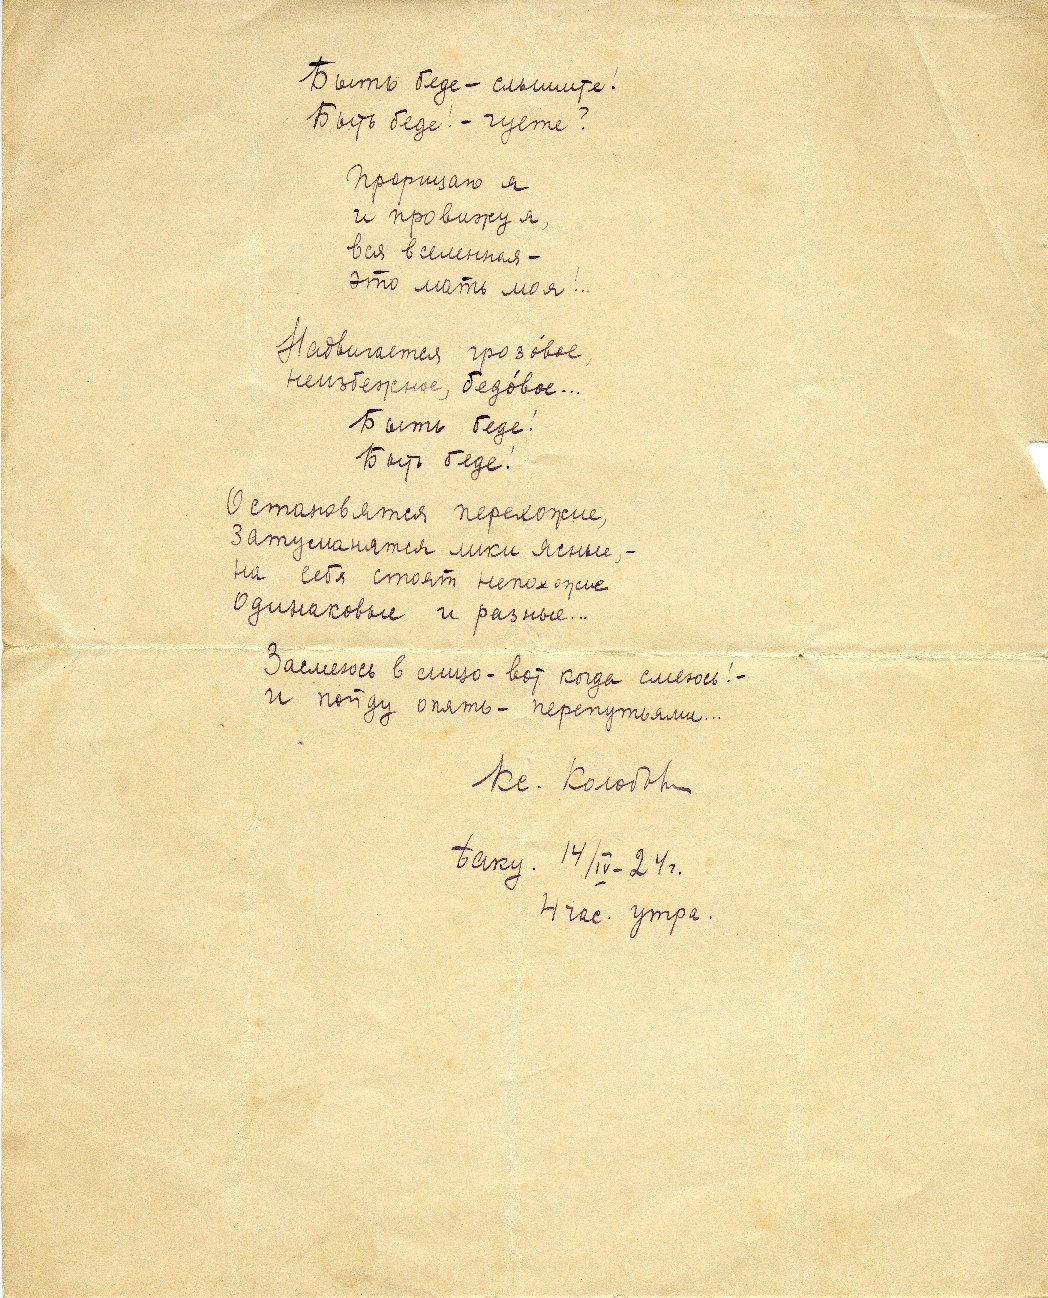 Быть беде – слышите!
Быть беде! – чуете?
Прорицаю я
и провижу я,
вся вселенная –
это мать моя!..
Надвигается грозо́вое,
неизбежное, бедо́вое...
Быть беде!
Быть беде!
Остановятся перехожие,
Затуманятся лики ясные, –
на себя стоят непохожие
Одинаковые и разные...
Засмеюсь в лицо – вот когда смеюсь! –
и пойду опять – перепутьями...
Кс. Колобова
Баку. 14/IV – 24 г.
4 час. утра.